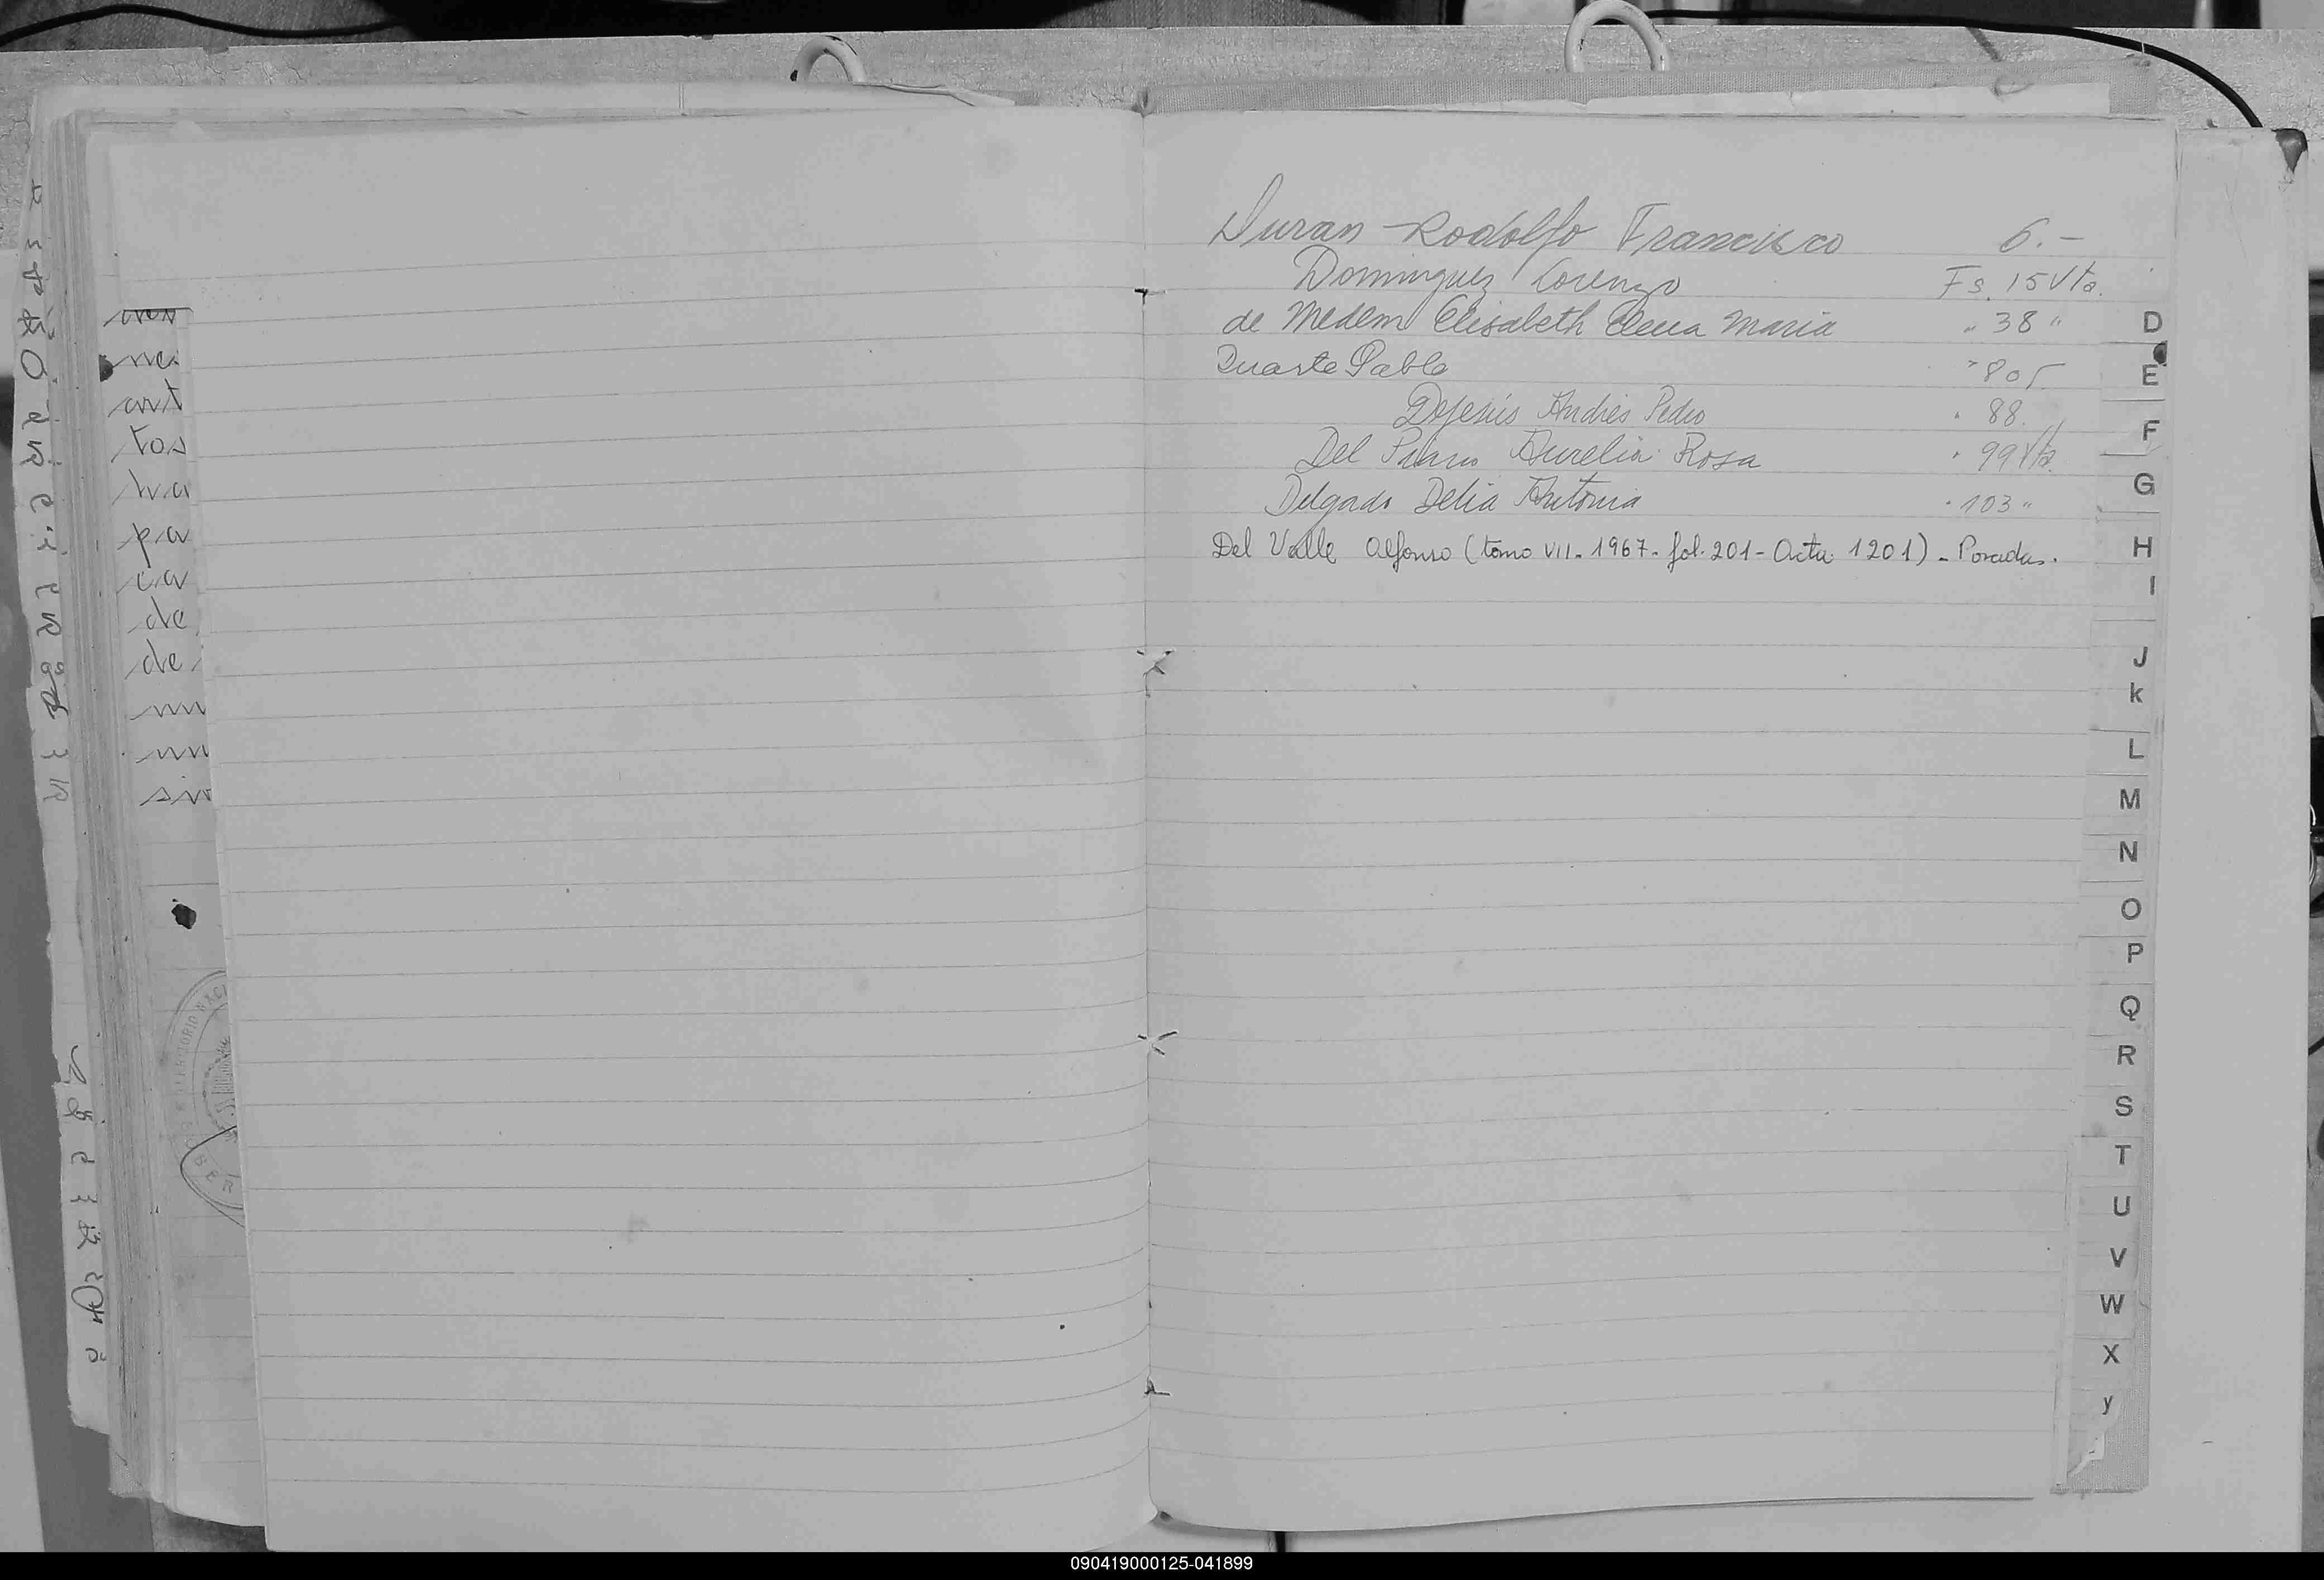 Duran Rodolfo Francisco 6.-
Dominguez Lorenzo Fs. 15 Vta.
de Medem Elisabeth Elena Maria " 38 "
Duarte Pablo " 80
Dejesús Andrés Pedro " 88
Del Aurelia Rosa " 99 Vta.
Delgado Delia Antonia " 103 "
Del Valle Alfonso (tomo VII - 1967 - fol. 201 - Acta 1201) - Posadas.
nei
ant
tos
ha
pa
ca
de
de
TERRITORIO NACI
D
E
F
G
H
I
J
k
L
M
N
O
P
Q
R
S
T
U
V
W
X
y
090419000125-041899